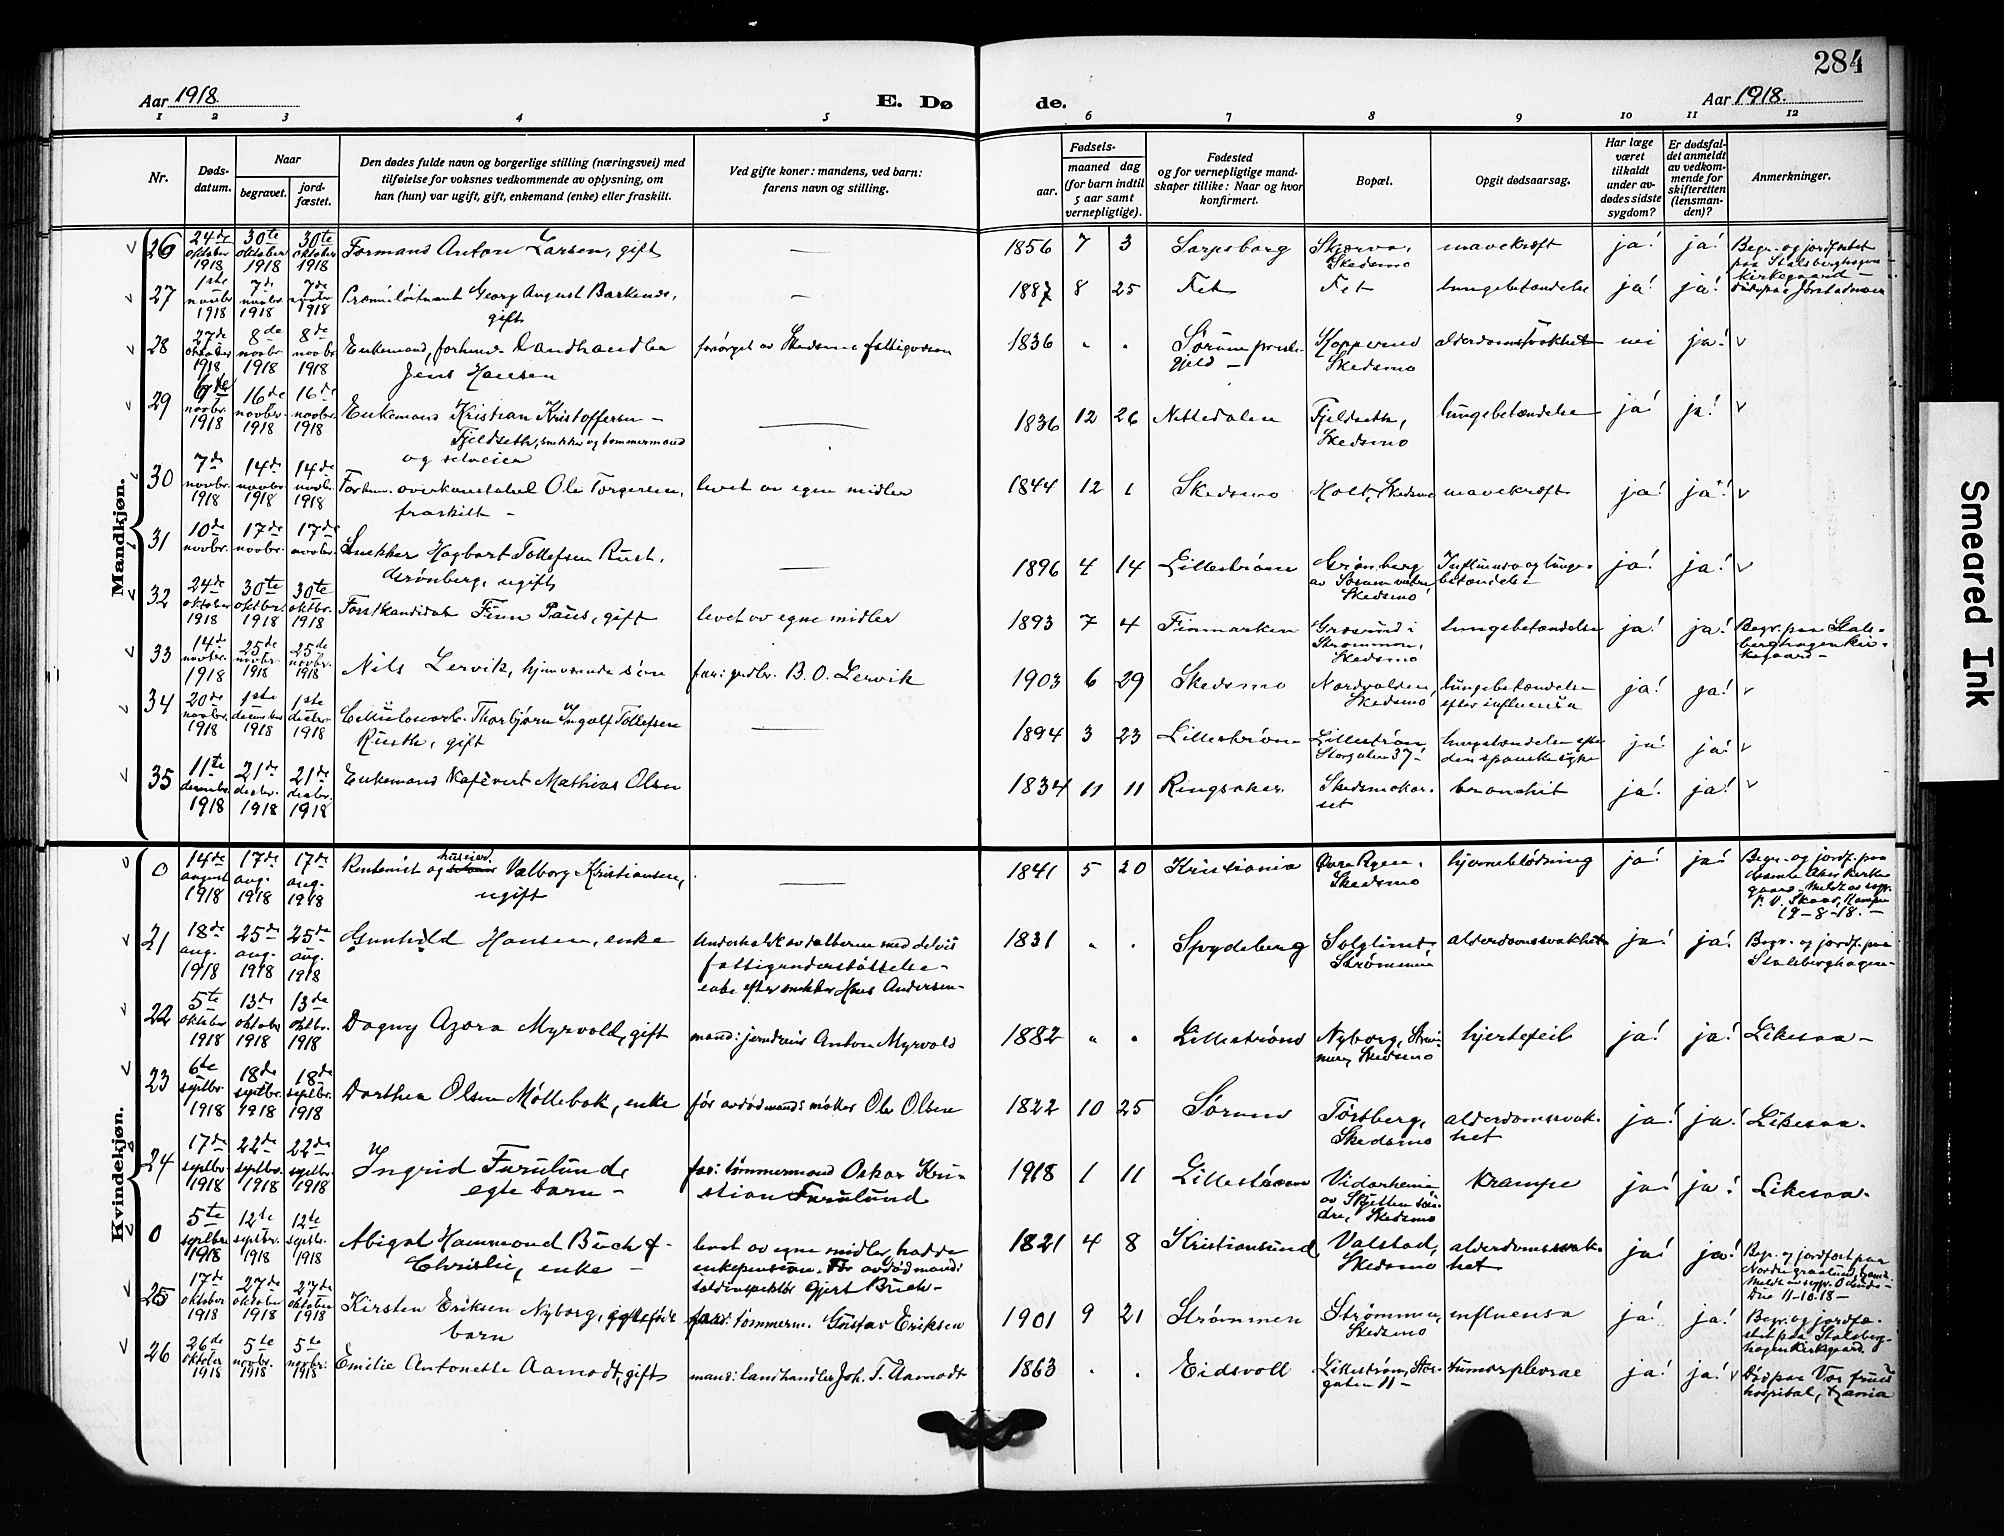 284
Aar 1918.
E. Dø
de.
Aar 1918.
1 2 3 4 5 6 7 8 9 10 11 12
Nr.
Døds-
datum.
Naar
begravet.
jord-
fæstet.
Den dødes fulde navn og borgerlige stilling (næringsvei) med
tilføielse for voksnes vedkommende av oplysning, om
han (hun) var ugift, gift, enkemand (enke) eller fraskilt.
Ved gifte koner: mandens, ved barn:
farens navn og stilling.
Fødsels-
aar.
maaned dag
(for barn indtil
5 aar samt
vernepligtige).
Fødested
og for vernepligtige mand-
skaper tillike: Naar og hvor
konfirmert.
Bopæl.
Opgit dødsaarsag.
Har læge
været
tilkaldt
under av-
dødes sidste
sygdom?
Er dødsfal-
det anmeldt
av vedkom-
mende for
skifteretten
(lensman-
den)?
Anmerkninger.
Mandkjøn.
26 24de oktober 1918 30te oktober 1918 30te oktober 1918 Formand Anton Larsen, gift — 1856 7 3 Sarpsborg Skjærva, Skedsmo mavekræft ja! ja! Begr. og jordfæstet paa Stalsberghagens kirkegaard —
27 1ste novbr 1918 7de novbr. 1918 7de novbr 1918 Premierløitnant Georg August Barkenæs, gift — 1887 8 25 Fet Fet lungebetændelse ja! ja! død paa Jørstadmoen
28 27de oktober 1918 8de novbr. 1918 8de novbr. 1918 Enkemand, forhenv. Landhandler Jens Hansen forsørget av Skedsmo fattigvæsen 1836 " " Sørum præstegjeld — Kopperud Skedsmo alderdomssvakhet nei ja!
29 6de novbr. 1918 16de novbr. 1918 16de novbr. 1918 Enkemand Kristian Kristoffersen — Fjeldseth, snekker og tømmermand og selveier — 1836 12 26 Nittedalen Fjeldseth, Skedsmo lungebetændelse ja! ja!
30 7de novbr. 1918 14de novbr 1918 14de novbr. 1918 Forhenv. overkonstabel Ole Torgersen, fraskilt — levet av egne midler 1844 12 1 Skedsmo Holt, Skedsmo mavekræft ja! ja!
31 10de novbr. 17de novbr. 17de novbr. Snekker Hagbart Tollefsen Rust, Grønberg, ugift — 1896 4 14 Lillestrøm Grønberg av Sørum vestre Skedsmo Influensa og lungebetændelse ja! ja!
32 24de oktober 1918 30te oktbr. 1918 30te oktbr. 1918 Forstkandidat Finn Paus, gift levet av egne midler 1893 7 4 Finmarken Grosund i Strømmen, Skedsmo lungebetændelse ja! ja! Begr. paa Stalsberghagen kirkegaard —
33 14de novbr. 1918 25de novbr. 1918 25de novbr. 1918 Nils Lervik, hjemværende søn far: grdbr. B. O. Lervik 1903 6 29 Skedsmo Nordvolden, Skedsmo lungebetændelse efter influensa ja! ja!
34 20de novbr. 1918 1ste december 1918 1ste desbr. 1918 Cellulosearb. Thorbjørn Ingolf Tollefsen Rusth, gift — 1894 3 23 Lillestrøm Lillestrøm Storgaten 37 lungebetændelse efter den spanske syke ja! ja!
35 11te desembr. 1918 21de desbr. 1918 21de desbr. 1918 Enkemand Kafévert Mathias Olsen 1834 11 11 Ringsaker Skedsmokorset bronchit ja! ja!
Kvindekjøn.
0 14de august 1918 17de aug. 1918 17de aug. 1918 Rentenist og huseier Valborg Kristiansen, ugift — 1841 5 20 Kristiania Øvre Ryen, Skedsmo hjerneblødning ja! ja! Begr. og jordf. paa Gamle Aker kirkegaard. Meldt av sogn. p. V. Skaar, Hampen 19-8-18. —
21 18de aug. 1918 25de aug. 1918 25de aug. 1918 Gunhild Hansen, enke Underholdt av døtrene med delvis fattigunderstøttelse — enke efter snekker Hans Andersen — 1831 " " Spydeberg Solglimt Strømmen alderdomssvakhet ja! ja! Begr. og jordf. paa Stalsberghagen —
22 5te oktober 1918 13de oktober 1918 13de oktbr. 1918 Dagny Azora Myrvold, gift mand: jerndreier Anton Myrvold 1882 " " Lillestrøm Nyborg, Strømmen, Skedsmo hjertefeil ja! ja! Likesaa —
23 6te septbr. 1918 18de septbr. 1918 18de septbr. 1918 Dorthea Olsen Møllebak, enke før avdød mand: møller Ole Olsen 1822 10 25 Sørum Torstberg, Skedsmo alderdomssvakhet ja! ja! Likesaa.
24 17de septbr. 1918 22de septbr. 1918 22de septbr. 1918 Ingrid Furulund, egte barn — far: tømmermand Oskar Kristian Furulund 1918 1 11 Lillestrøm Vidarheim av Skjetten søndre, Skedsmo Krampe ja! ja! Likesaa.
0 5te septbr 1918 12te septbr. 1918 12te septbr. 1918 Abigal Hammond Buch f. Christie, enke — levet av egne midler, hadde enkepension. Før avdød mand: toldinspektør Gjert Buch — 1821 4 8 Kristiansund Valstad, Skedsmo alderdomssvakhet ja! ja! Begr. og jordfæst paa Nordre gravlund, Meldt av sogn. O. Due 11-10-18 —
25 17de oktober 1918 27de oktober 1918 27de oktober 1918 Kirsten Eriksen Nyborg, egtefødt barn far: tømmerm. Gustav Eriksen 1901 9 21 Strømmen Strømmen, Skedsmo influensa ja! ja! Begr. og jordfæstet paa Stalsberghagen kirkegaard
26 26de oktober 1918 5te novbr. 1918 5te novbr. 1918 Emilie Antonette Aamodt, gift mand: landhandler Joh. T. Aamodt 1863 " " Eidsvoll Lillestrøm, Storgaten 11 — tumorplevrae ja! ja! Død paa Vor frues hospital, Kr.ania
Smeared Ink